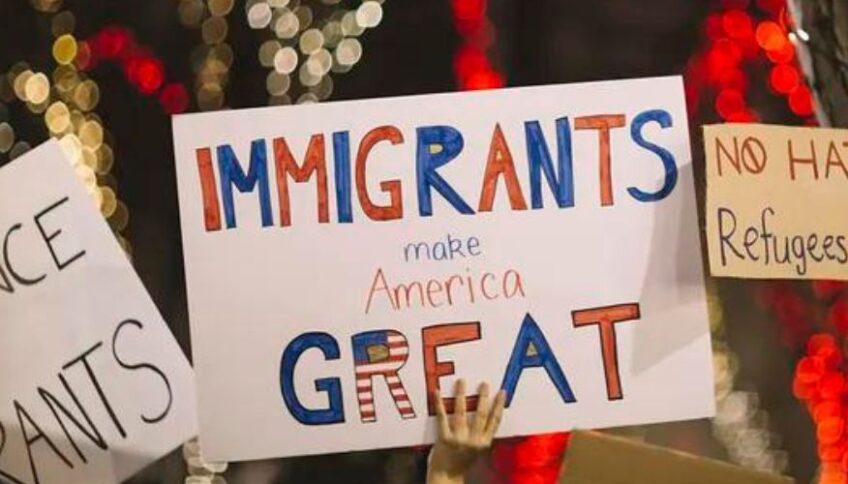 IMMIGRANTS
make
America
GREAT
NO HA
Refugees